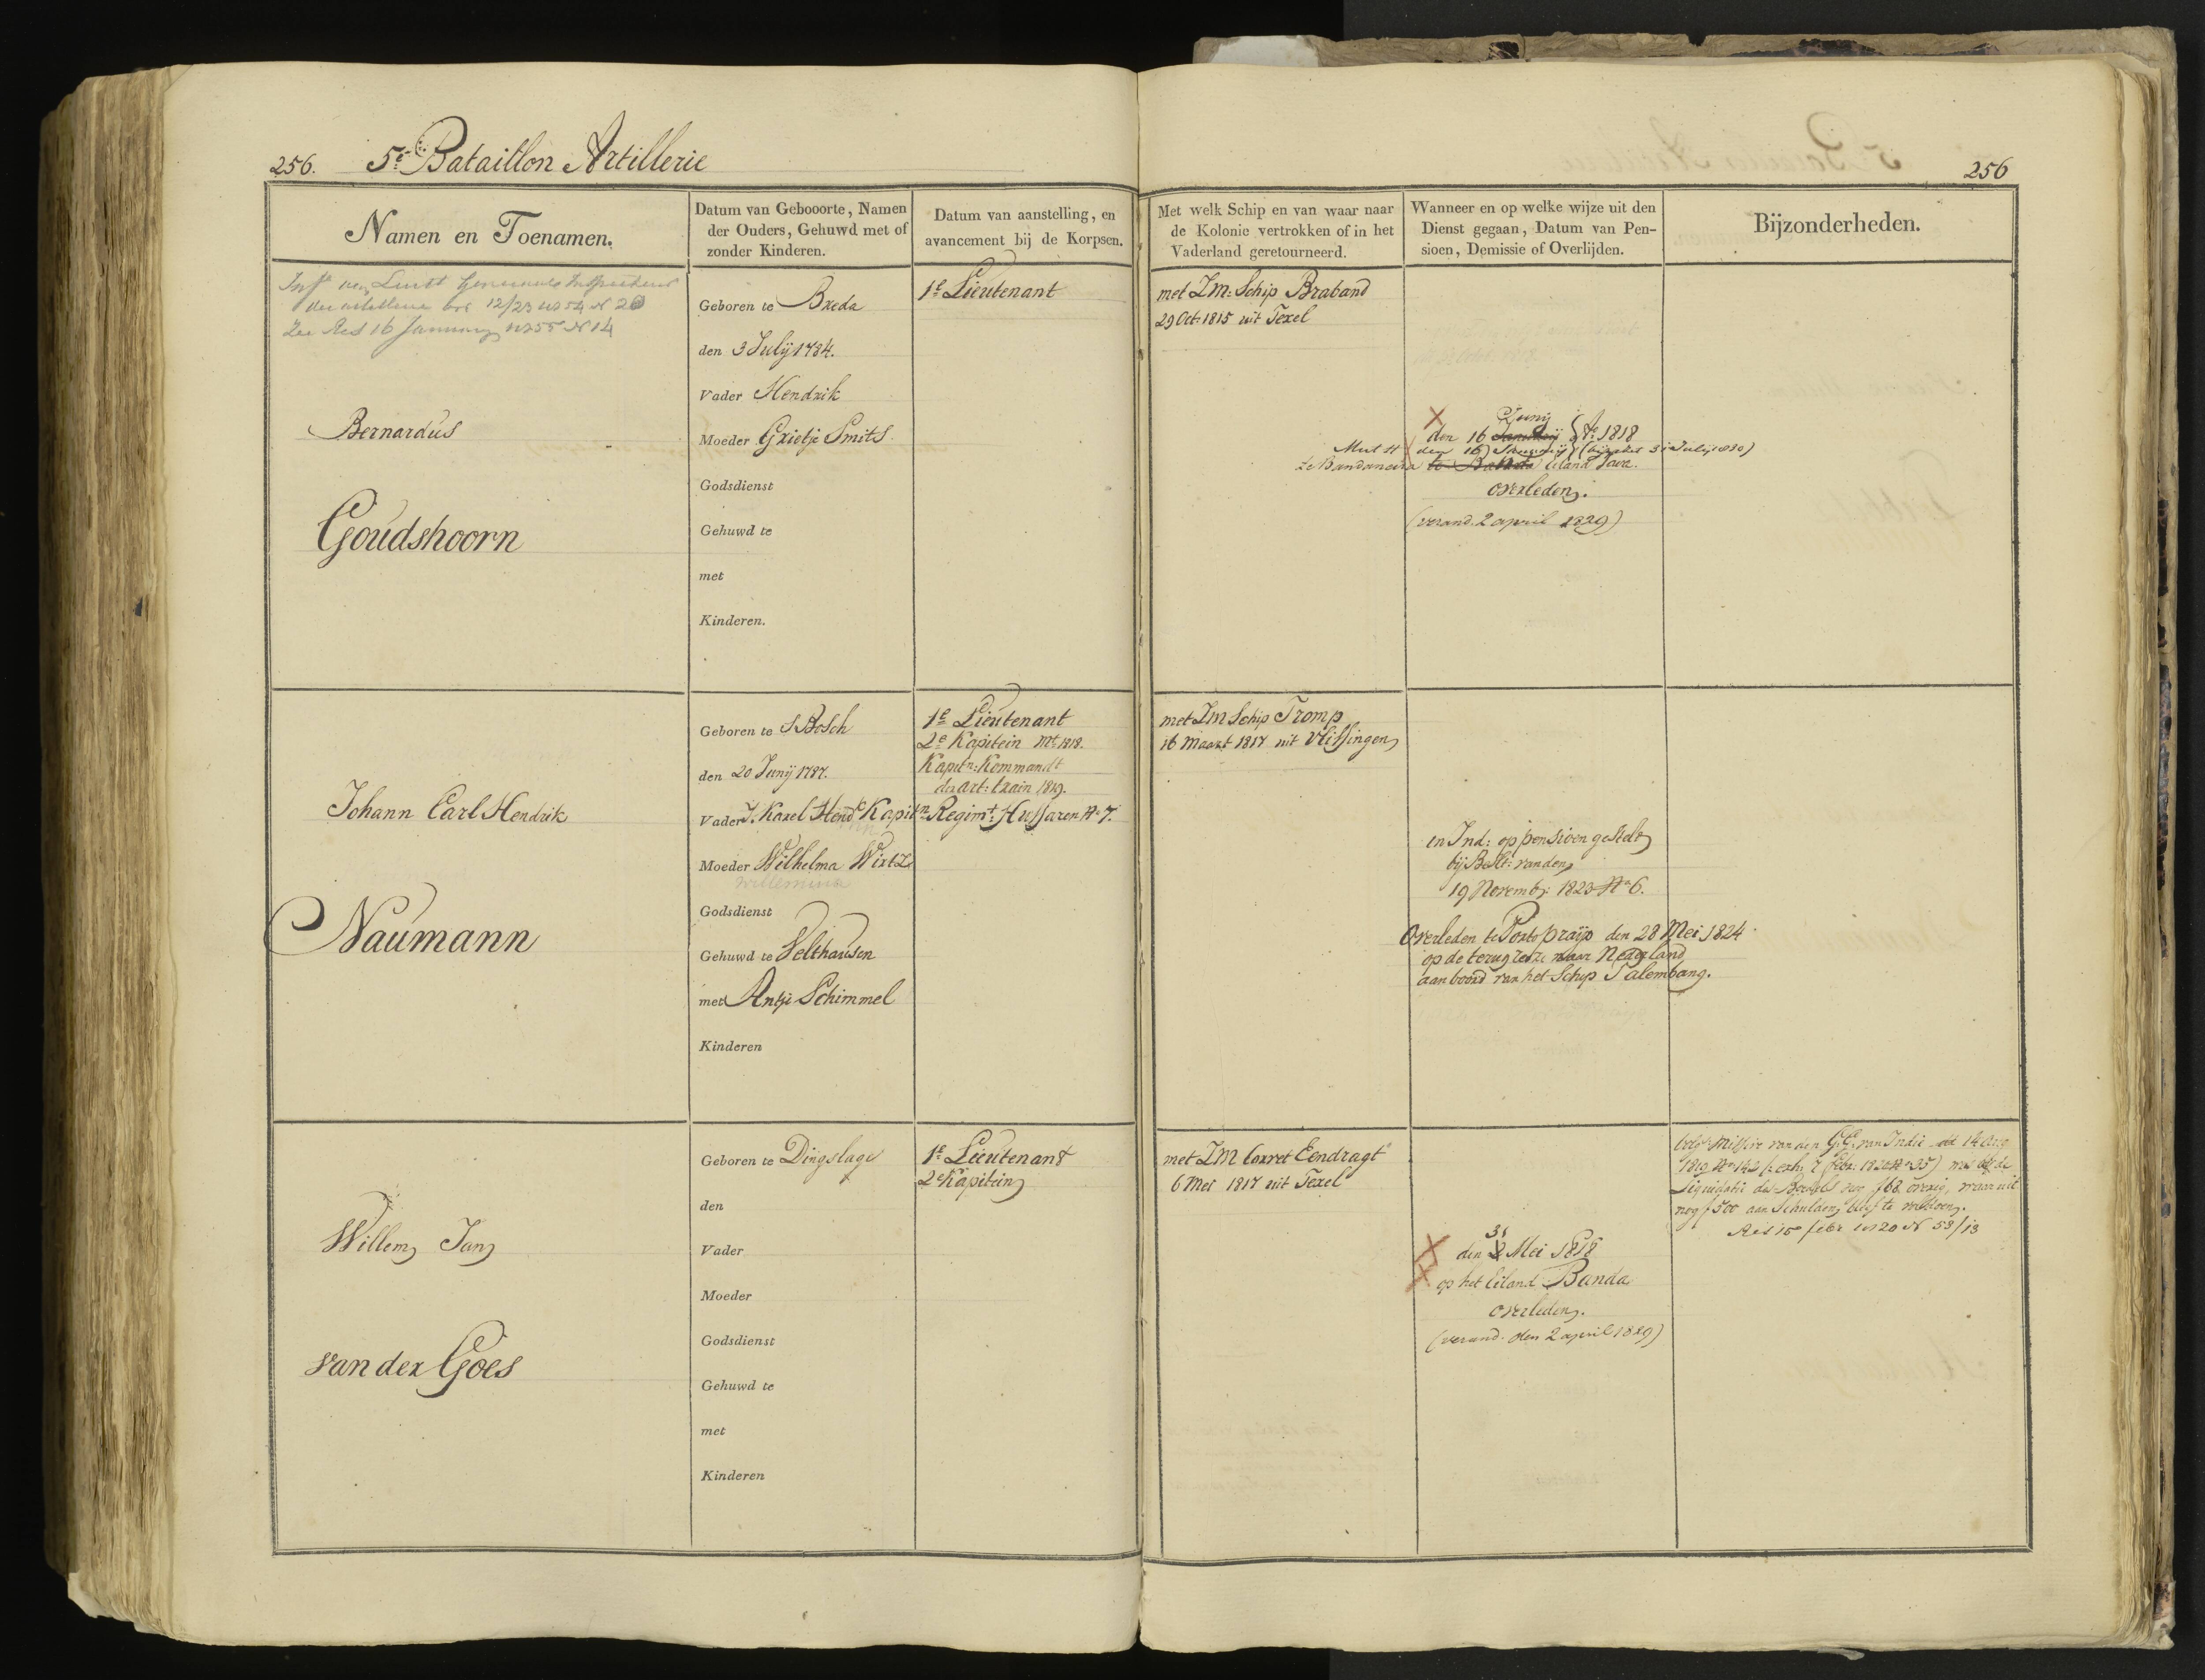 256. 5e Bataillon Artillerie
256
Namen en Toenamen.
Datum van Gebooorte, Namen
der Ouders, Gehuwd met of
zonder Kinderen.
Datum van aanstelling, en
avancement bij de Korpsen.
Met welk Schip en van waar naar
de Kolonie vertrokken of in het
Vaderland geretourneerd.
Wanneer en op welke wijze uit den
Dienst gegaan, Datum van Pen-
sioen, Demissie of Overlijden.
Bijzonderheden.
der artillerie 12/23 54 N 20
Zie Res 16 January 1855 N 14
Bernardus
Goudshoorn
Geboren te Breda
den 3 Julÿ 1784.
Vader Hendrik
Moeder Grietje Smits
Godsdienst
Gehuwd te
met
Kinderen.
1e Lieutenant
met ZM: Schip Braband
29 Oct: 1815 uit Texel
Junij
den 16 Januarij Ao 1818
den 16 Januarij
te Bandaneira te Banda Eiland Java.
overleden.
(verand. 2 april 1829)
Johann Carl Hendrik
Naumann
Geboren te S Bosch
den 20 Junij 1787.
Vader J. Karel Hendk Kapitn Regimt Hussaren No 7.
Moeder Wilhelma Wirtz
Willemina
Godsdienst
Gehuwd te Velthausen
met Antje Schimmel
Kinderen
1e Lieutenant
2e Kapitein Mt 1818.
Kapitn: Kommandt
der art: train 1819.
met ZM Schip Tromp
16 Maart 1817 uit Vlissingen
in Ind: op pensioen gesteld
bij Beslt: van den
19 Novemb: 1823 No 6.
Overleden te Porto praÿa den 28 Mei 1824
op de terug reize naar Nederland
aan boord van het Schip Palembang.
Willem Jan
van der Goes
Geboren te Dingslage
den
Vader
Moeder
Godsdienst
Gehuwd te
met
Kinderen
1e Lieutenant
2e Kapitein
met ZM Corvet Eendragt
6 Mei 1817 uit Texel
31
den 2 Mei 1818
op het Eiland Banda
overleden.
(verand. den 2 april 1829)
missive van den G.G. van Indie dd 14
1819 No 142 (: exh: 7 febr: 1820 No 35) bij de
Liquidatie des Boedels f 68 overig, waaruit
nog f 500 aan Schulden blijft te voldoen.
Res 15 febr 1820 N 58/13